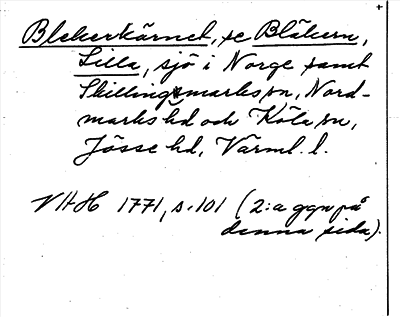 Blekerkärnet, se Bläkern,
Lilla, sjö i Norge samt
Skillingsmarks sn, Nord-
marks hd och Köla sn,
Jösse hd, Värml. l.
VHH 1771, s. 101 (2:a ggn på
denna sida).